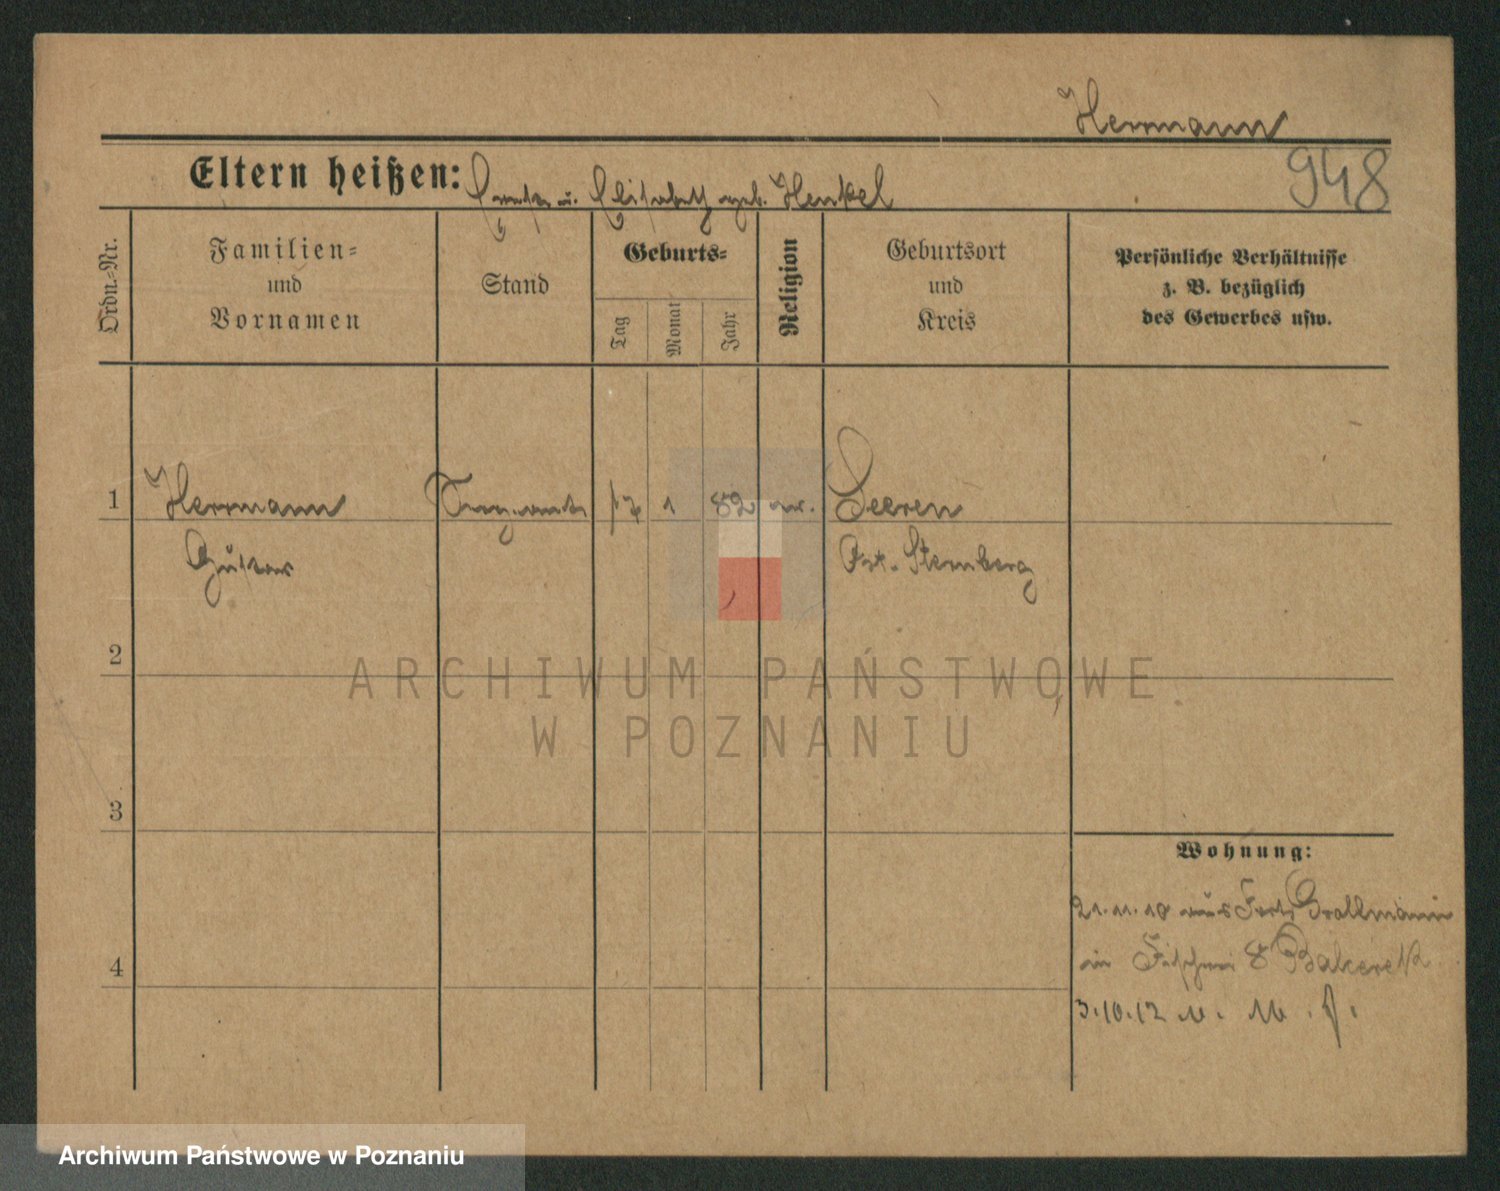 Herrmann
948
Eltern heißen: u. Elisabeth geb. Henkel
Ordn.-Nr.
Familien- und Vornamen
Stand
Geburts-
Tag
Monat
Jahr
Religion
Geburtsort und Kreis
Persönliche Verhältnisse
z. B. bezüglich
des Gewerbes usw.
1 Herrmann 1 82 ev. Seeren
Gustav Ost-Sternberg
2
ARCHIWUM PAŃSTWOWE
W POZNANIU
3
Wohnung:
21.11.10 aus Fort Grollmann
in 8 Bakereck
4
3.10.12 n.
Archiwum Państwowe w Poznaniu